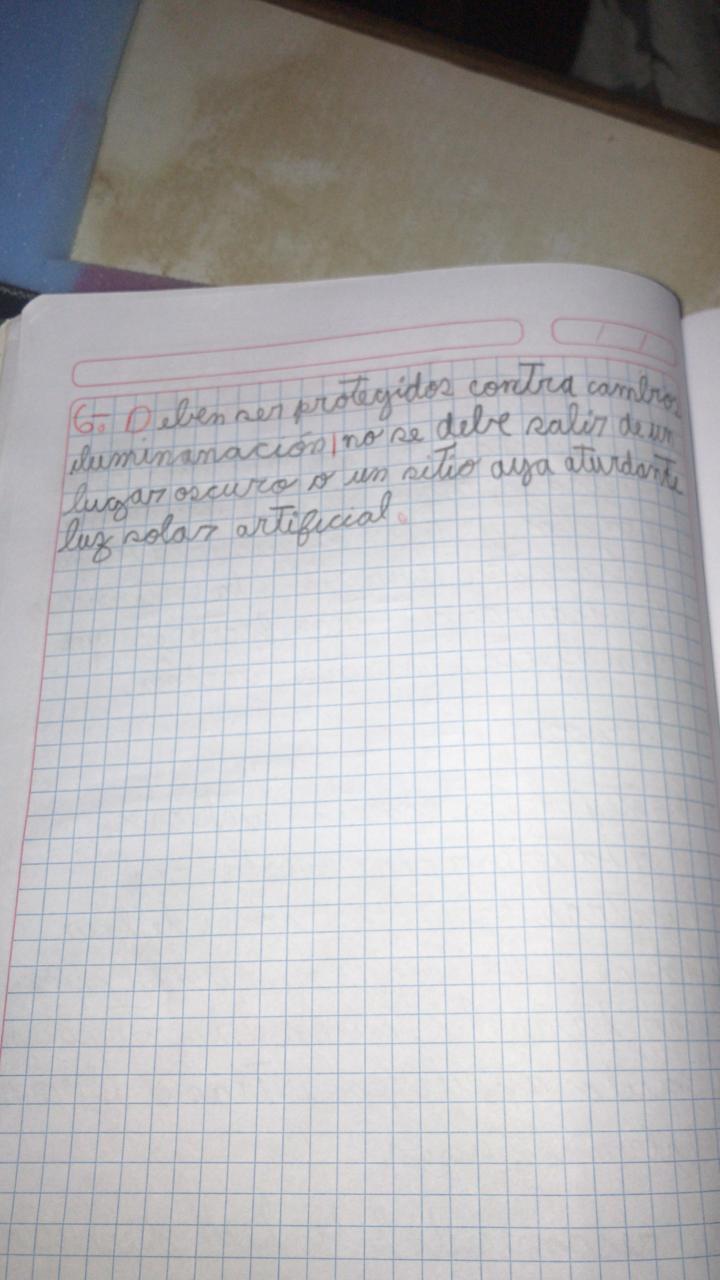 6: Deben ser protegidos contra cambios
iluminanación, no se debe salir de un
lugar oscuro o un sitio aya aturdante
luz solar artificial.